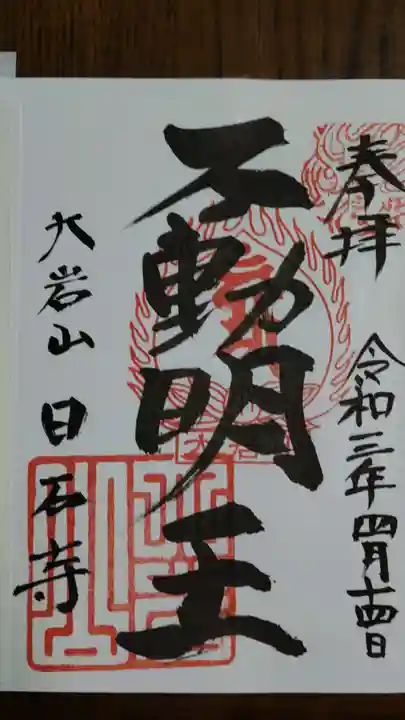 奉拝
令和三年四月十四日
不動明王
大岩山 日石寺